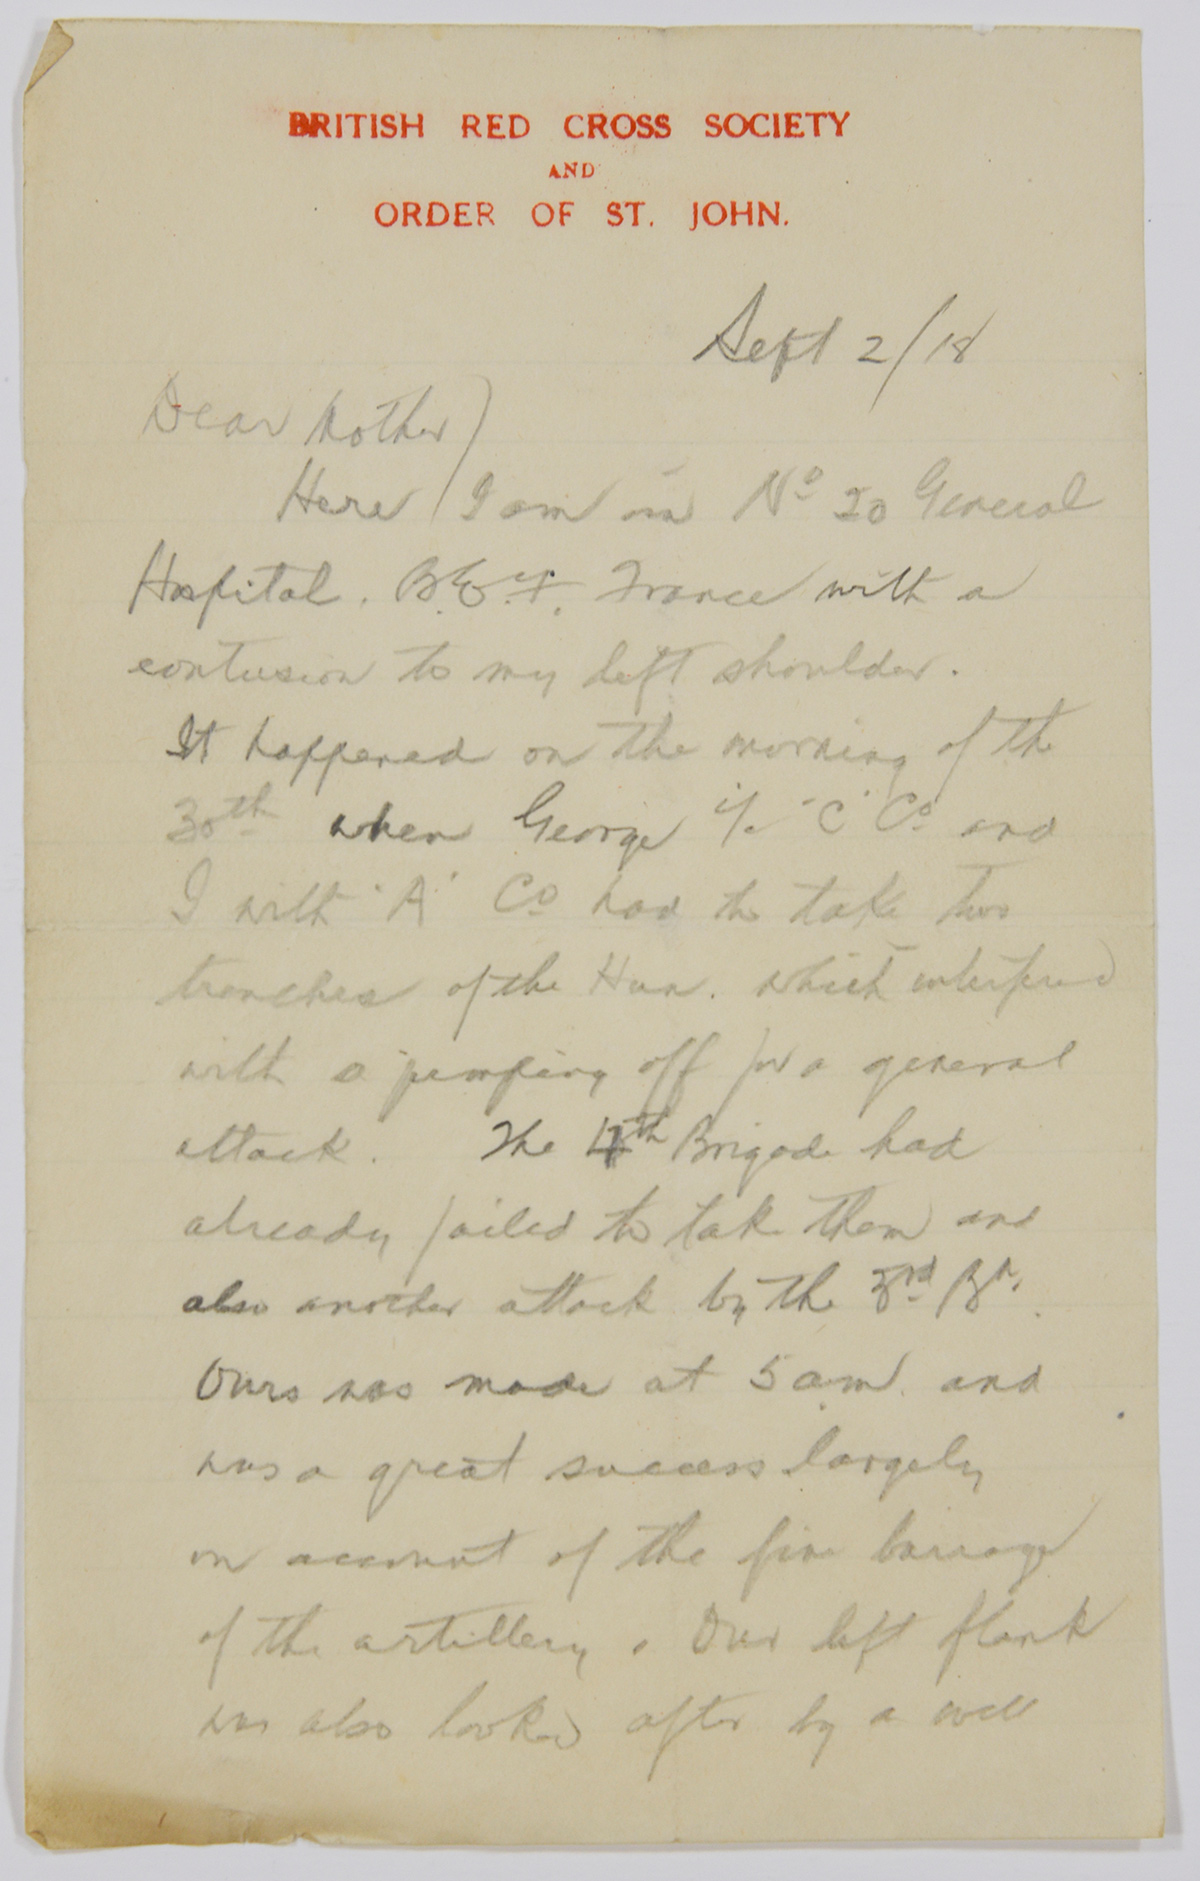 BRITISH RED CROSS SOCIETY
AND
ORDER OF ST. JOHN.
Sept 2/18
Dear Mother
Here I am in No 20 General
Hospital. B.E.F. France with a
contusion to my left shoulder.
It happened on the morning of the
30th when George i/c 'C' Co and
I with 'A' Co had to take two
trenches of the Hun. which interfered
with a jumping off for a general
attack. The 4th Brigade had
already failed to take them and
also another attack by the 3rd Bn.
Ours was made at 5 am. and
was a great success largely
on account of the fine barrage
of the artillery. Our left flank
was also looked after by a well